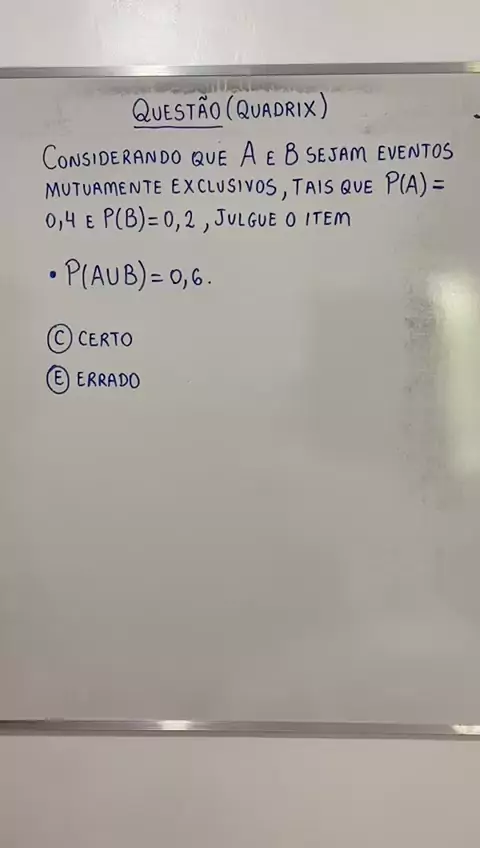 QUESTÃO (QUADRIX)
CONSIDERANDO QUE A E B SEJAM EVENTOS
MUTUAMENTE EXCLUSIVOS, TAIS QUE P(A) =
0,4 E P(B) = 0,2, JULGUE O ITEM
• P(A∪B) = 0,6.
Ⓒ CERTO
Ⓔ ERRADO